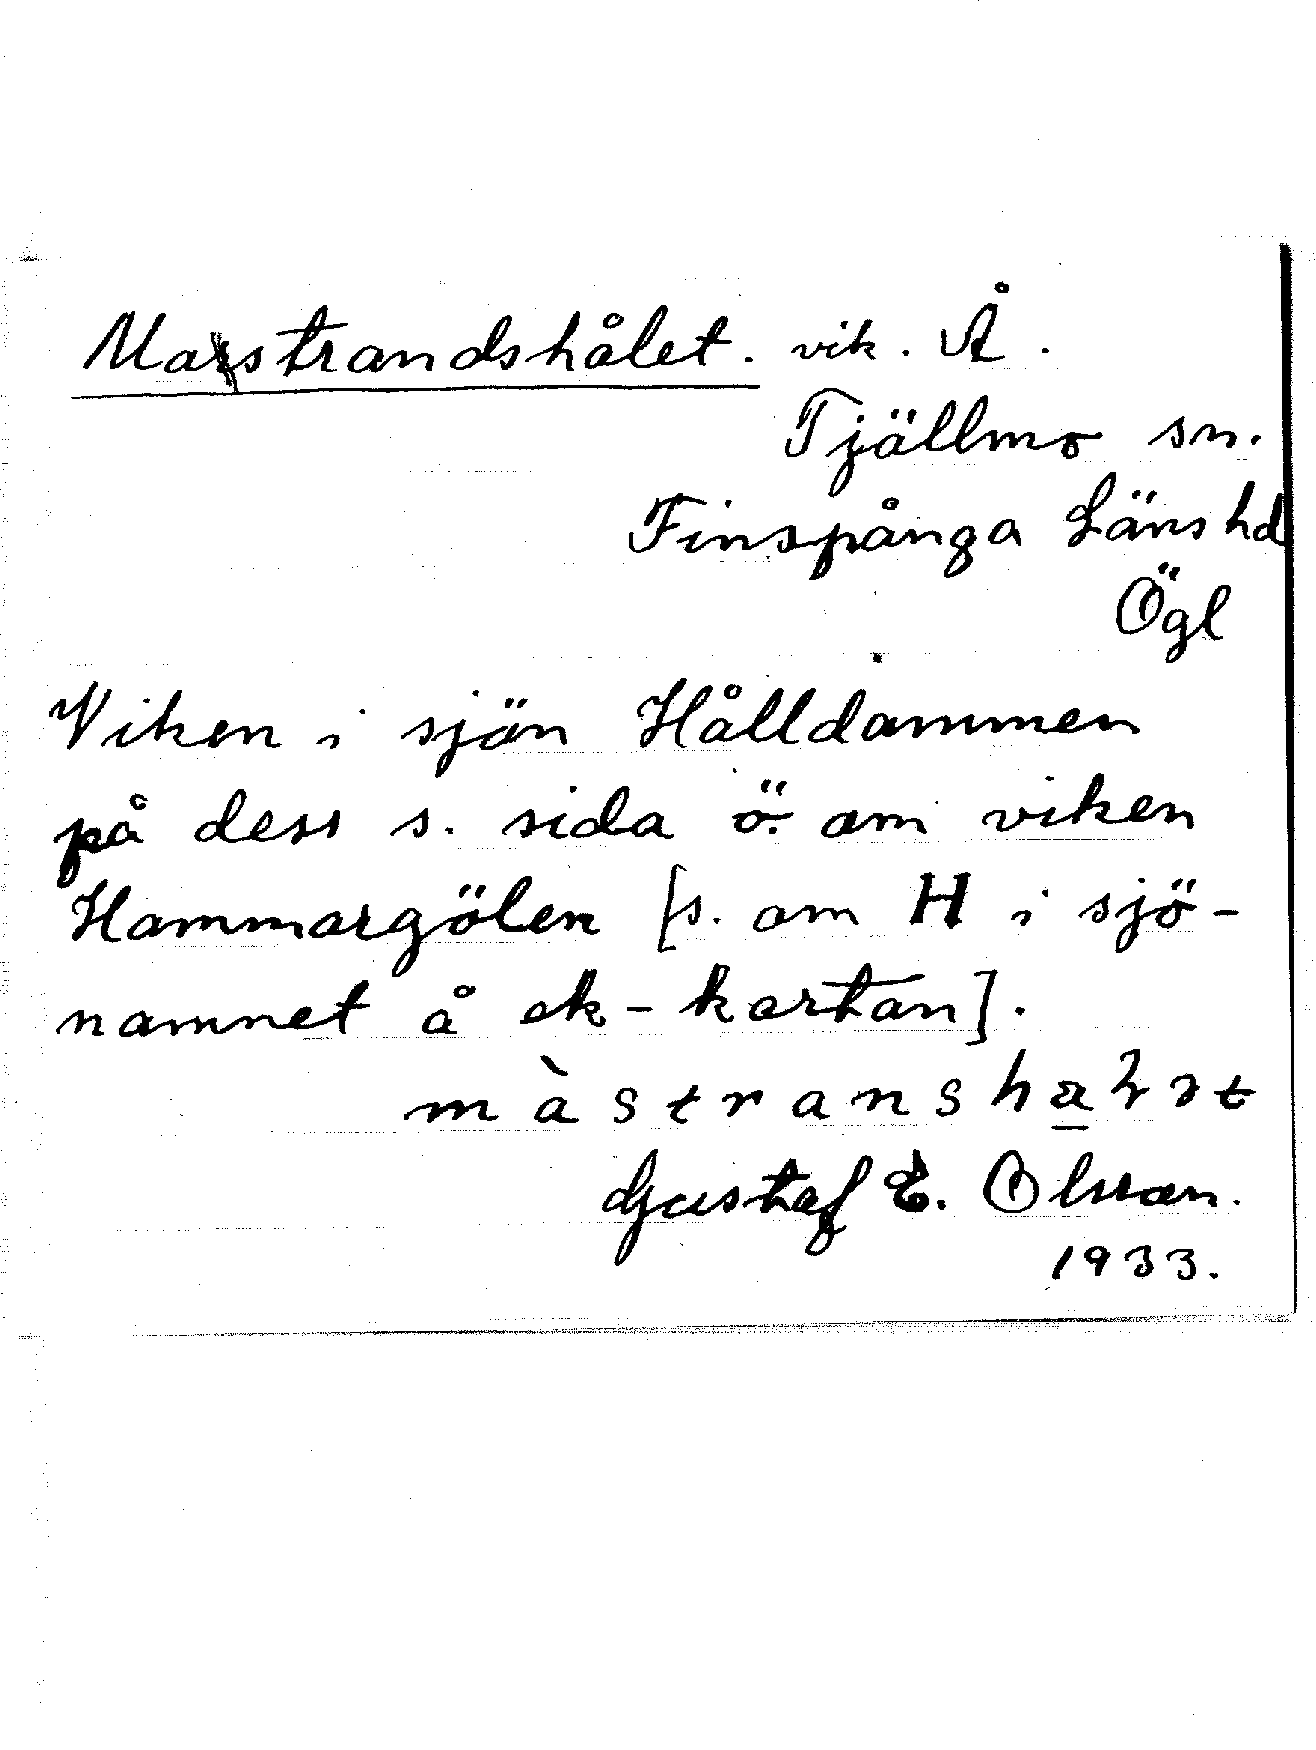 Marstrandshålet. vik. Å.
Tjällmo sn.
Finspånga Läns hd
Ögl
Viken i sjön Hålldammen
på dess s. sida ö. om viken
Hammargölen [s. om H i sjö-
namnet å ek-kartan].
Gustaf E. Olsson.
1933.